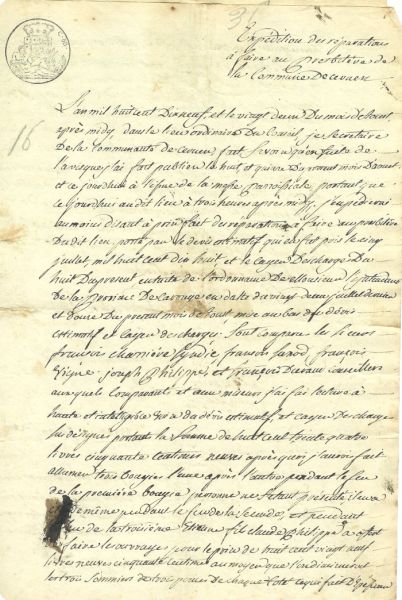 Expédition des réparations
à faire au presbitère de
la Commune de
16
L'an mil huit cent Dixneuf et le vingt deux Du mois d'aout,
après midy dans le lieu ordinaire Du Conseil, je secretaire
De la Communauté de fait savoir qu'en suite de
l'avis que j'ai fait publier le huit et quinze Du present mois D'aout
et ce jourdhuy à l'issue de la messe parroissiale portant que
ce jourdhuy audit lieu à trois heures après midy, j'expedierai
au moins disant à prix fait des reparations à faire au presbitère
Dudit lieu, porté par le devis estimatif qui en fut pris le cinq
juillet, mil huit cent dix huit et le cayer Des charges Du
huit Du present en suite de l'ordonnance De Monsieur l'Intendant
De la Province De Carouge en date du vingt deux juillet dernier
et douze Du present mois De tout mise au bas du devis
estimatif et cayer des charges. Sont comparu les sieurs
François Charrière Syndic, François François
Vigne joseph Philippe, et François conseillers
auxquels Comparants et aux miseurs j'ai fait lecture à
haute et intelligible voix du devis estimatif, et cayer Des charges
sus désignés portant la Somme de huit cent trente quatre
livres cinquante centimes neuves après quoy j'aurois fait
allumer trois bougies l'une après l'autre pendant le feu
de la première bougie personne ne s'étant présenté
de même pendant le feu de la seconde, et pendant
feu de la troisième Etienne fils Claude Philippe a offert
faire les ouvrages pour le prix de huit cent vingt neuf
livres neuves cinquante centimes au moyen que
les trois sommes de trois